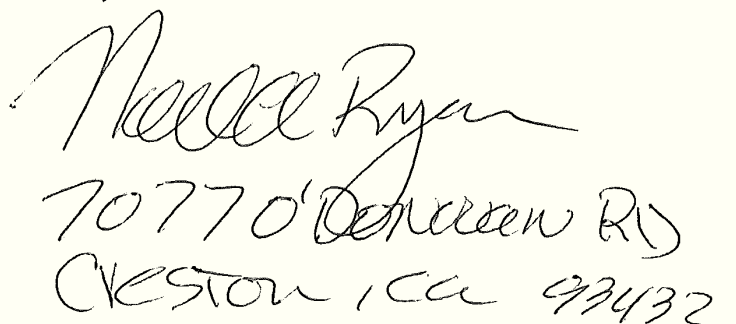 Ryan
7077 O'Donovan RD
Creston, Ca 93432